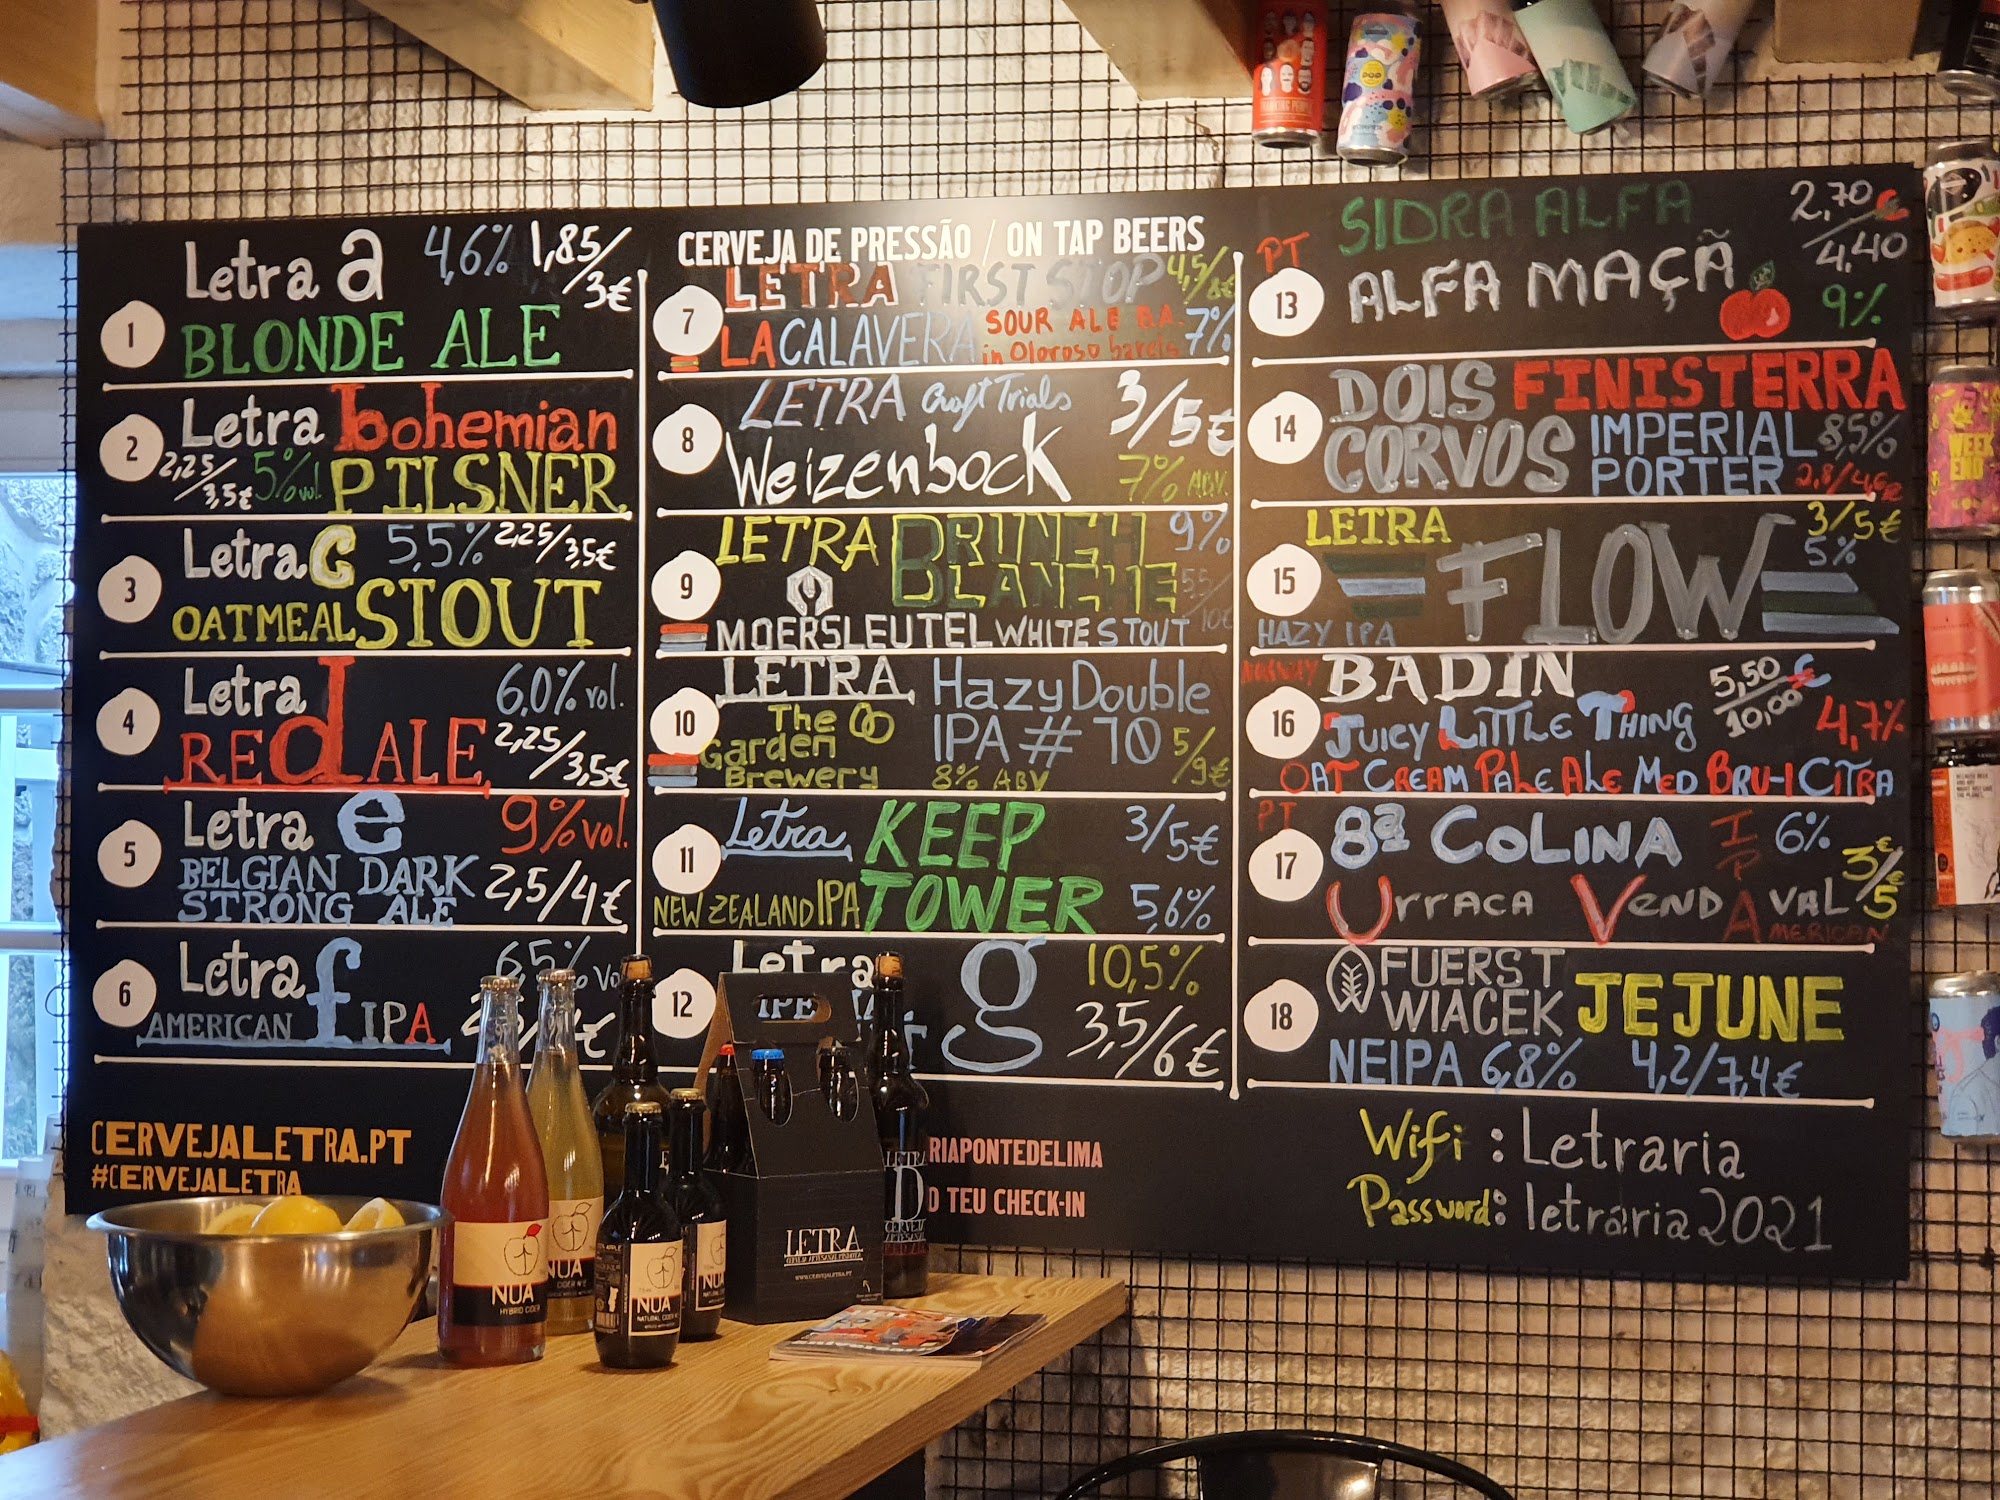 CERVEJA DE PRESSÃO / ON TAP BEERS
1
Letra a 4,6% 1,85/3€
BLONDE ALE
2
Letra bohemian
2,25/3,5€ 5% vol. PILSNER
3
Letra C 5,5% 2,25/3,5€
OATMEAL STOUT
4
Letra d 6,0% vol.
RED ALE 2,25/3,5€
5
Letra e 9% vol.
BELGIAN DARK
STRONG ALE 2,5/4€
6
Letra f 6,5% Vo
AMERICAN IPA
7
LETRA FIRST STOP 4,5/8€
LA CALAVERA SOUR ALE B.A. 7%
in Oloroso barels
8
LETRA Craft Trials 3/5€
Weizenbock 7% ABV.
9
LETRA BRUNCH 9%
BLANCHE 5,5/10€
MOERSLEUTEL WHITE STOUT
10
LETRA Hazy Double
The Garden Brewery IPA # 10 5/9€
8% ABV
11
Letra KEEP 3/5€
NEW ZEALAND IPA TOWER 5,6%
12
Letra g 10,5%
3,5/6€
PT
13
SIDRA ALFA 2,70€/4.40
ALFA MAÇÃ 9%
14
DOIS FINISTERRA
CORVOS IMPERIAL 8,5%
PORTER 2,8/4,6€
15
LETRA FLOW 3/5€
5%
HAZY IPA
NORWAY
16
BADIN 5,50/10,00€
JUICY LITTLE THING 4,7%
OAT CREAM PALE ALE MED BRU-1 CITRA
PT
17
8ª COLINA IPA 6%
URRACA VENDAVAL 3€/5€
AMERICAN
18
FUERST
WIACEK JEJUNE
NEIPA 6,8% 4,2/7,4€
CERVEJALETRA.PT
#CERVEJALETRA
RIAPONTEDELIMA
O TEU CHECK-IN
Wifi : Letraria
Password: letraria2021
NUA
HYBRID CIDER
NUA
CIDER
NUA
NATURAL CIDER
NUA
NATURAL CIDER
LETRA
WWW.CERVEJALETRA.PT
LETRA
D
POP
WEEK
END